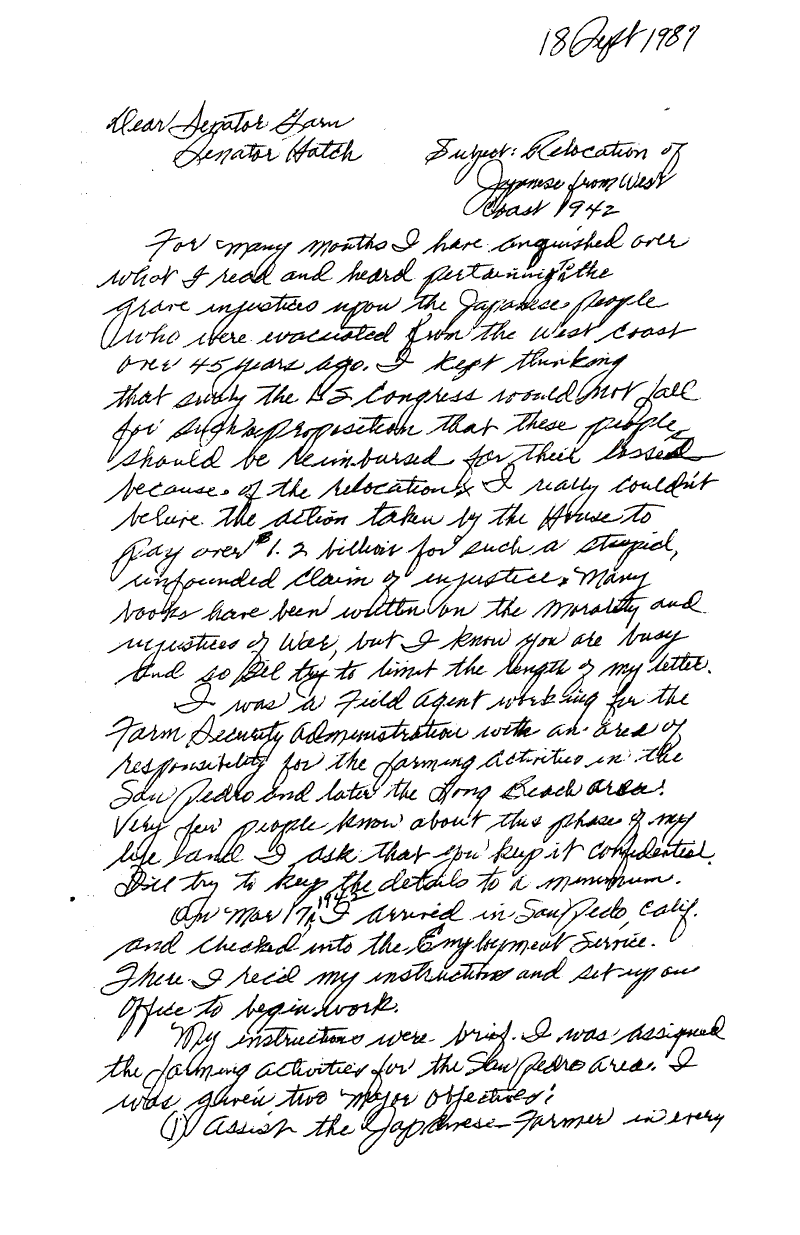 18 Sept 1987
Dear Senator Garn
Senator Hatch
Subject: Relocation of
Japanese from West
Coast 1942
For many months I have anguished over
what I read and heard pertaining to the
grave injustices upon the Japanese people
who were evacuated from the west coast
over 45 years ago. I kept thinking
that surely the US Congress would not fall
for such a proposition that these people
should be reimbursed for their losses
because of the relocation. I really couldn't
believe the action taken by the House to
pay over $1.2 billion for such a stupid,
unfounded claim of injustice. Many
books have been written on the morality and
injustices of War, but I know you are busy
and so I'll try to limit the length of my letter.
I was a Field Agent working for the
Farm Security Administration with an area of
responsibility for the farming activities in the
San Pedro and later the Long Beach area.
Very few people know about this phase of my
life and I ask that you keep it confidential.
I'll try to keep the details to a minimum.
On Mar 17, 1942 I arrived in San Pedro, Calif.
and checked into the Employment Service.
There I rec'd my instructions and set up our
office to begin work.
My instructions were brief. I was assigned
the farming activities for the San Pedro area. I
was given two major objectives:
(1) Assist the Japanese Farmer in every